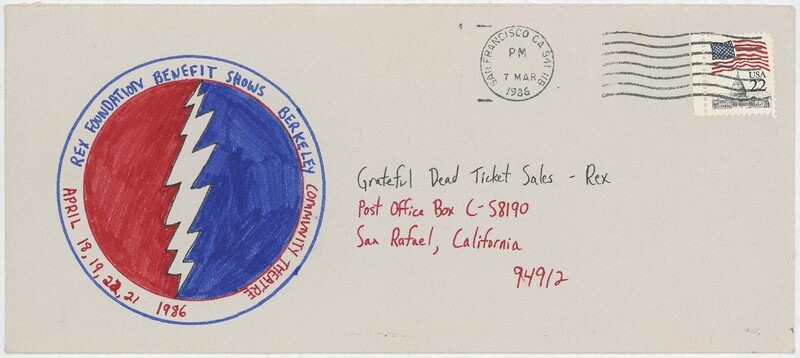 REX FOUNDATION BENEFIT SHOWS BERKELEY COMMUNITY THEATRE
APRIL 18, 19, 22, 21 1986
SAN FRANCISCO CA 941
PM
7 MAR
1986
USA
22
Grateful Dead Ticket Sales - Rex
Post Office Box C-S8190
San Rafael, California
94912